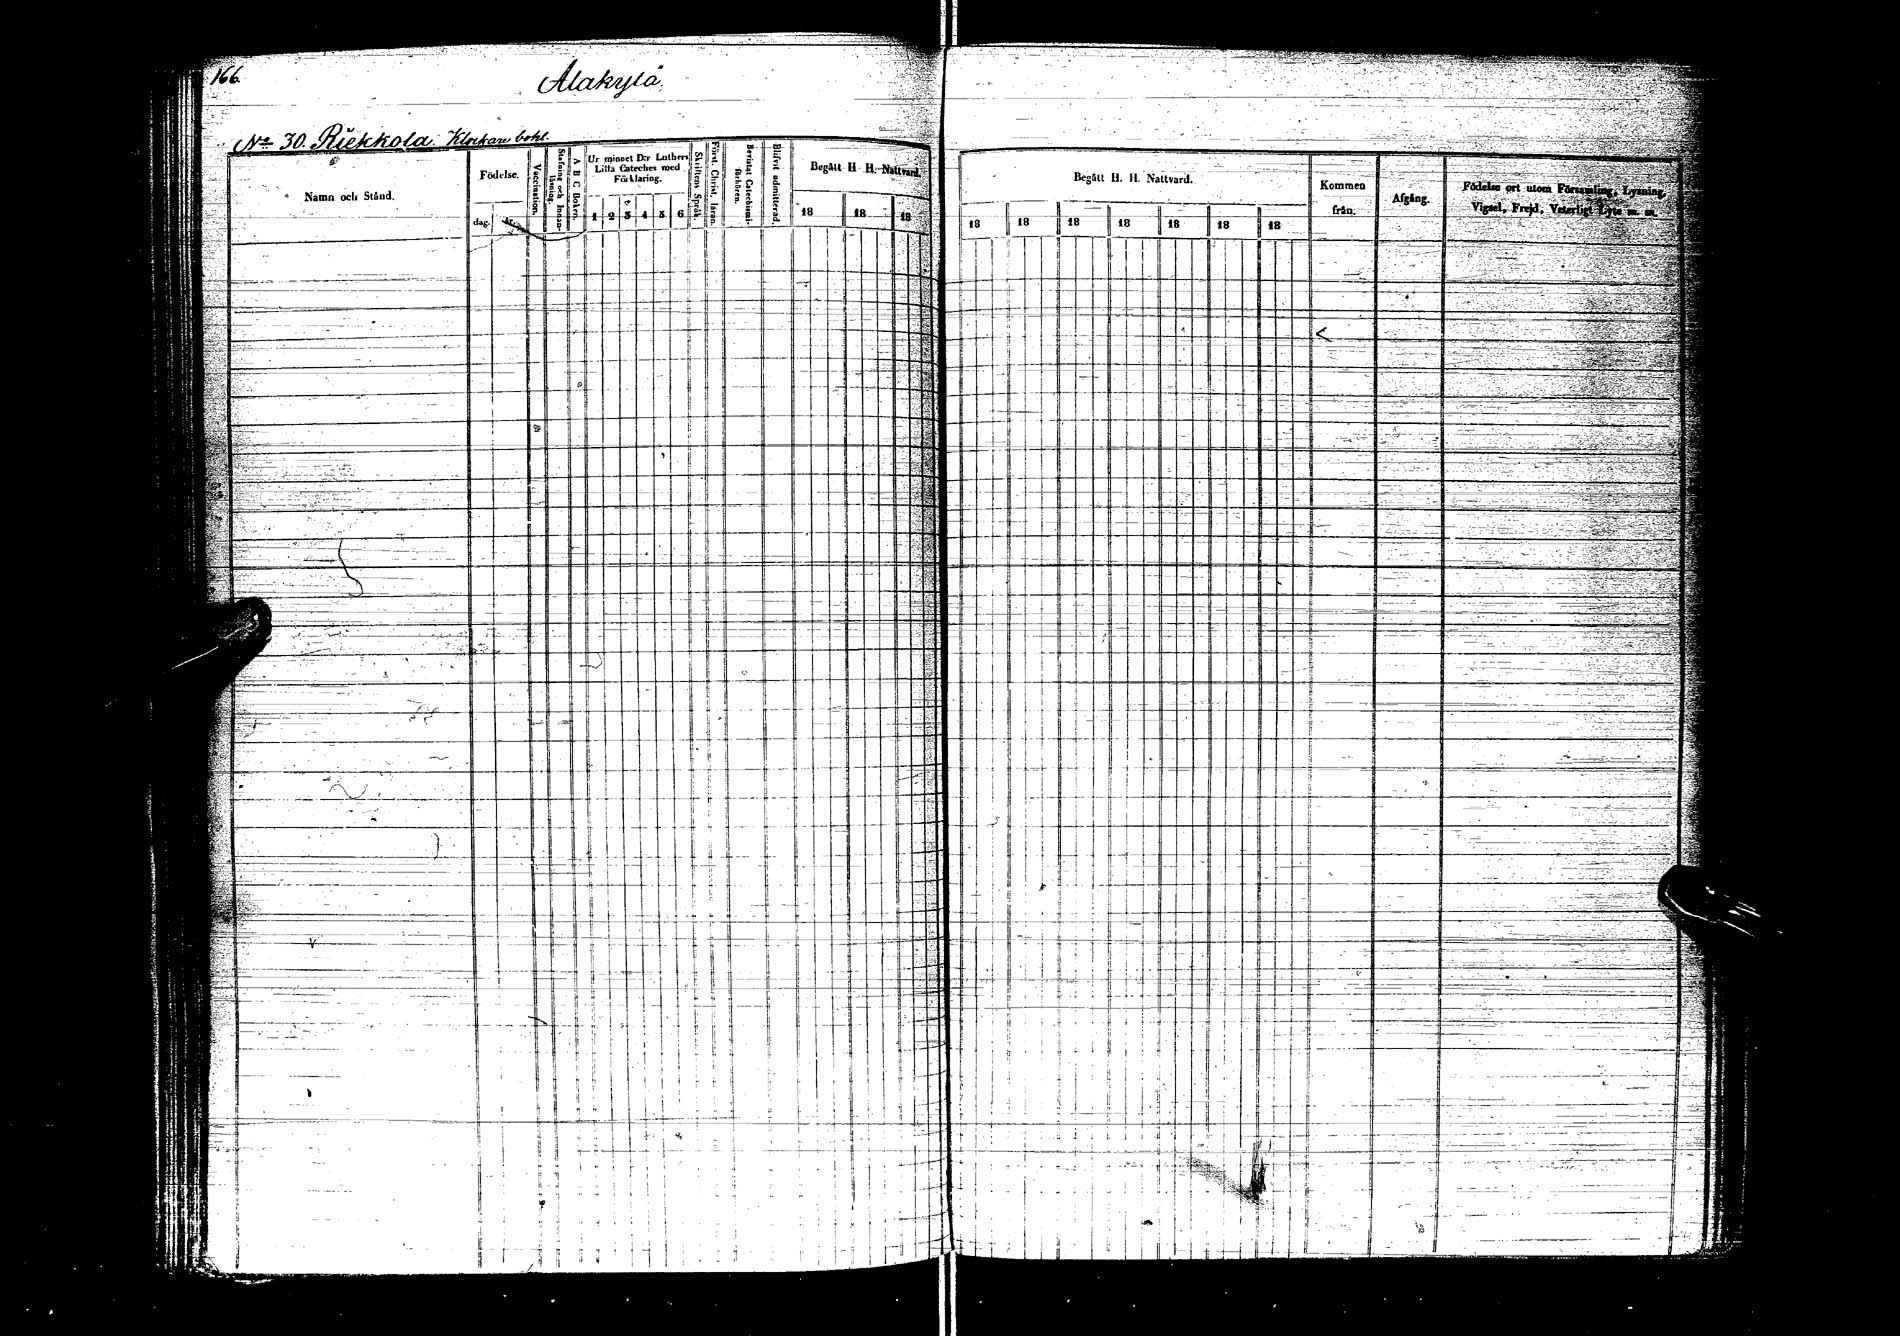 166.
Alakylä
No 30. Riekkola. Klockare bohl.
Namn och Stånd.
Födelse.
dag.
år.
Vaccination.
Stafning och Innan-läsning.
A B C Boken.
Ur minnet D:r Luthers
Lilla Cateches med
Förklaring.
1 2 3 4 5 6
Skriftens Språk.
Först. Christ. läran.
Bevistat Catechismi-förhören.
Blifvit admitterad.
Begått H. H. Nattvard.
18 18 18
Begått H. H. Nattvard.
18 18 18 18 18 18 18
Kommen
från.
Afgång.
Födelse ort utom Församling, Lysning,
Vigsel, Frejd, Veterligt Lyte m. m.